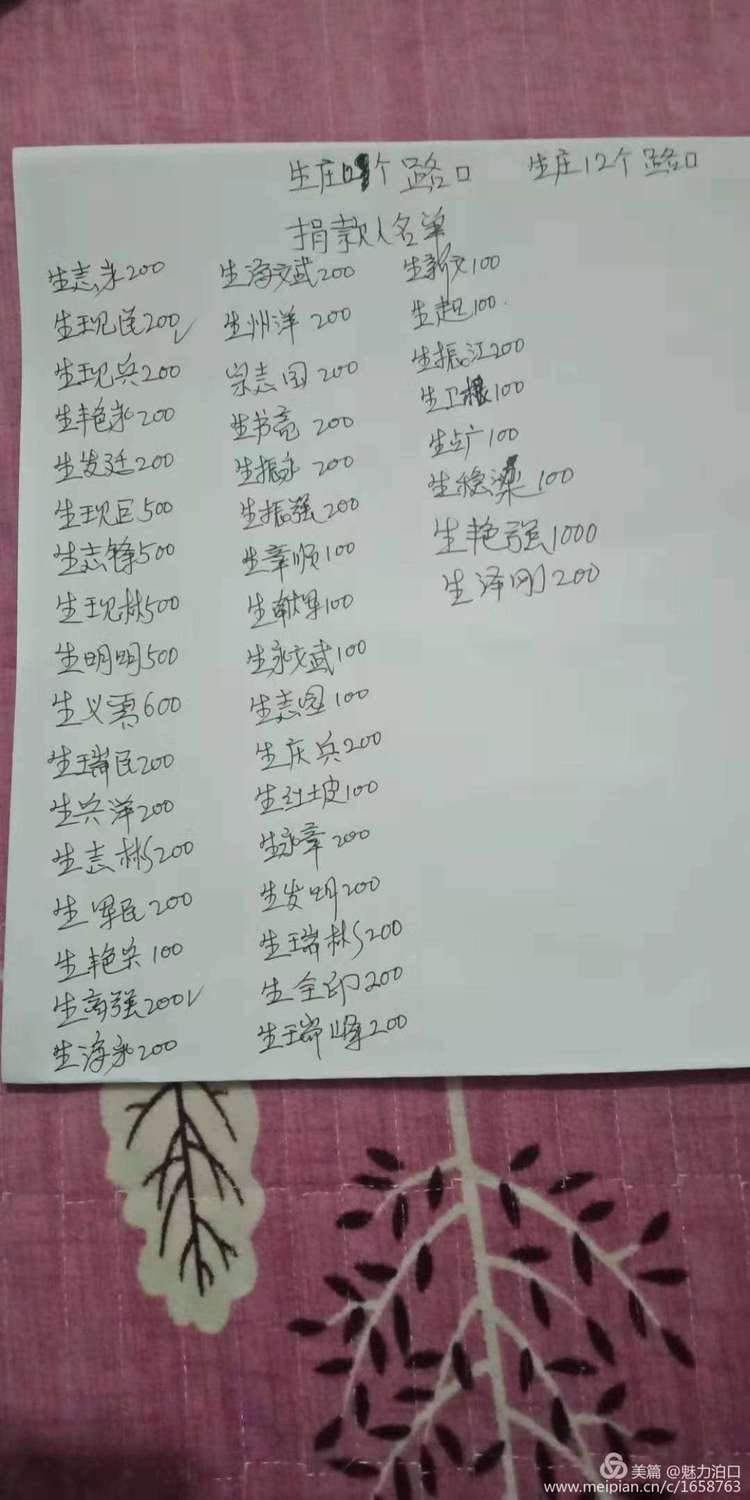 生庄 个路口 生庄12个路口
捐款人名单
生志永200
生现民200√
生现兵200
生艳永200
生发廷200
生现巨500
生志锋500
生现林500
生明明500
生义云600
生瑞民200
生兵洋200
生志彬200
生军民200
生艳宾100
生高强200√
生海永200
生海武200
生州洋200
宗志国200
生书亮200
生振永200
生振强200
生章顺100
生献军100
生永武100
生志国100
生庆兵200
生红坡100
生永章200
生发明200
生瑞彬200
生全印200
生瑞峰200
生新文100
生起100
生振江200
生卫根100
生占广100
生稳梁100
生艳强1000
生泽刚200
美篇 @魅力泊口
www.meipian.cn/c/1658763